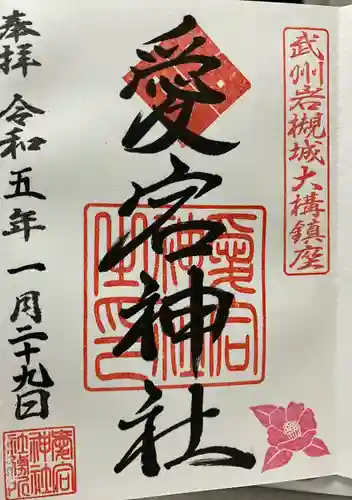 武州岩槻城大構鎮座
愛宕神社
奉拝 令和五年一月二十九日
愛宕
神社
之印
愛宕
神社